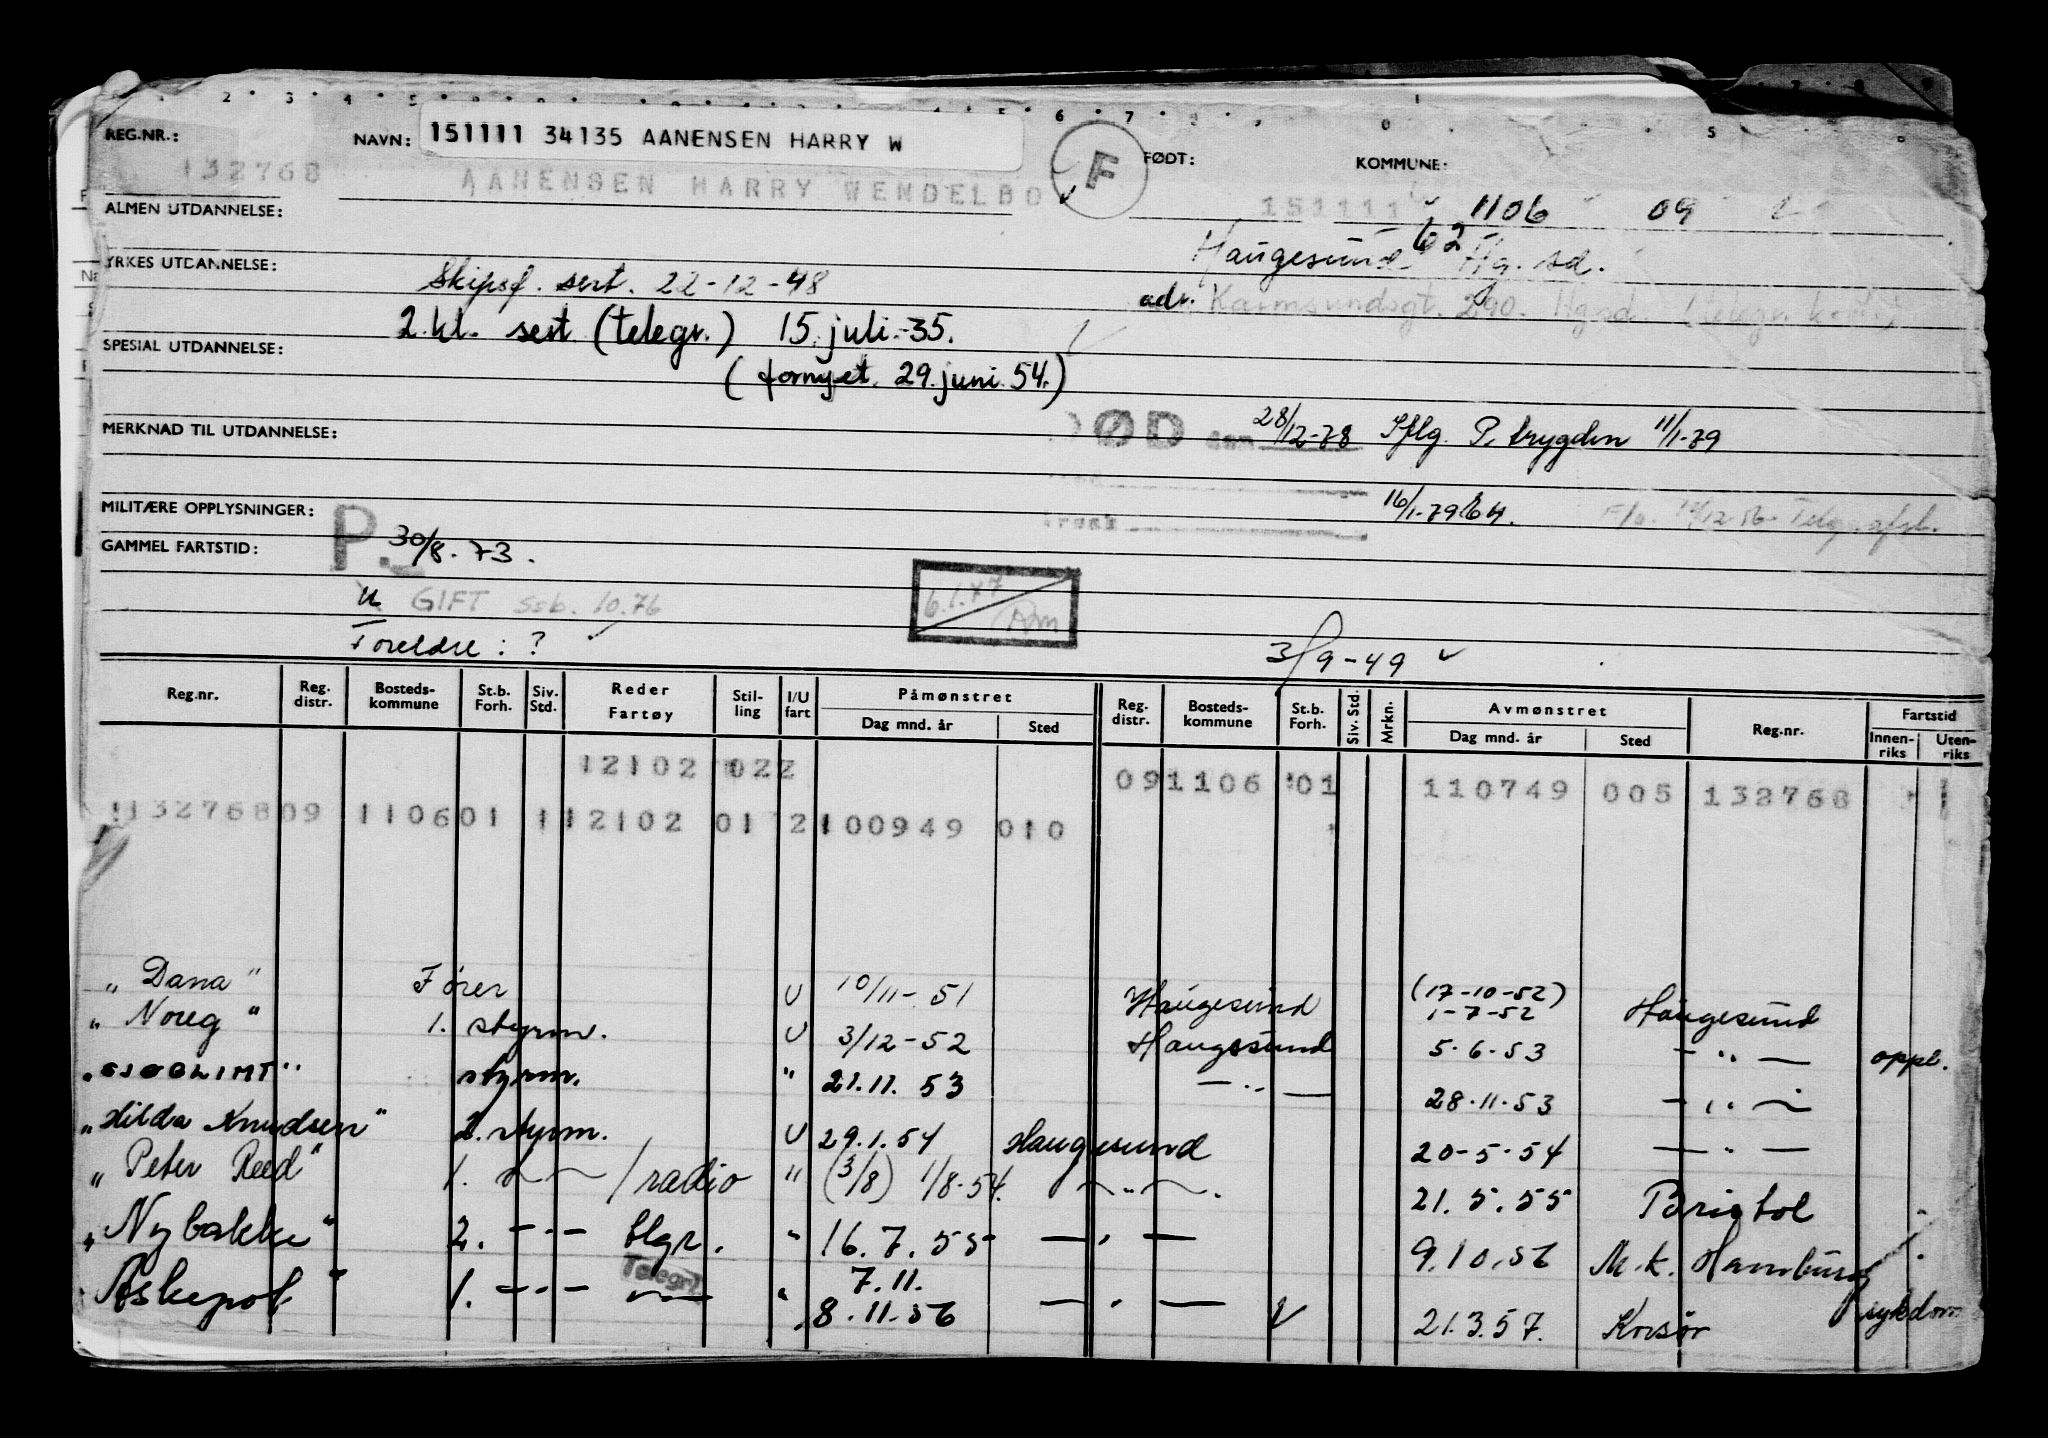 REG.NR.: 132768 NAVN: 151111 34135 AANENSEN HARRY W F FØDT: KOMMUNE:
AANENSEN HARRY WENDELBO 151111 1106 09
ALMEN UTDANNELSE:
Haugesund 62 Hg.sd.
YRKES UTDANNELSE: Skipsf. sert. 22-12-48
adr. Karmsundsgt. 290. Hg.sd.
2.kl. sert (telegr.) 15. juli.-35.
SPESIAL UTDANNELSE:
(fornyet. 29. juni. 54.)
MERKNAD TIL UTDANNELSE: DØD den 28/12-78 Iflg. P. trygden 11/1-79
MILITÆRE OPPLYSNINGER: 16/1-79
GAMMEL FARTSTID: P. 30/8.73.
U GIFT ssb. 10.76 6.1.77
Foreldre : ? 3/9-49
Reg.nr. Reg. distr. Bosteds- kommune St.b. Forh. Siv. Std. Reder Fartøy Stil- ling I/U fart Påmønstret Dag mnd. år Sted Reg. distr. Bosteds- kommune St.b. Forh. Siv. Std. Mrkn. Avmønstret Dag mnd. år Sted Reg.nr. Fartstid Innen- riks Uten- riks
12102 022 091106 01 110749 005 132768
13276809 110601 112102 01 2 100949 010
"Dana" Fører U 10/11-51 Haugesund (17-10-52) 1-7-52 Haugesund
"Noreg" 1. styrm. U 3/12-52 Haugesund 5.6.53 - " - oppl.
"SJOGLIMT" styrm. " 21.11.53 - " - 28.11.53 - " -
"Hilda Knudsen" 2. styrm. U 29.1.54 Haugesund 20-5-54 - " -
"Peter Reed" 1. - " - /radio " (3/8) 1/8-54. - " - 21.5.55 Bristol
"Nybakke" 2. - " - tlgr. " 16.7.55 - " - 9.10.56 M.k. Hamburg
"Askepot" 1. - " - Telegr. " 7.11. 8.11.56 - " - 21.3.57. Korsør sykdom